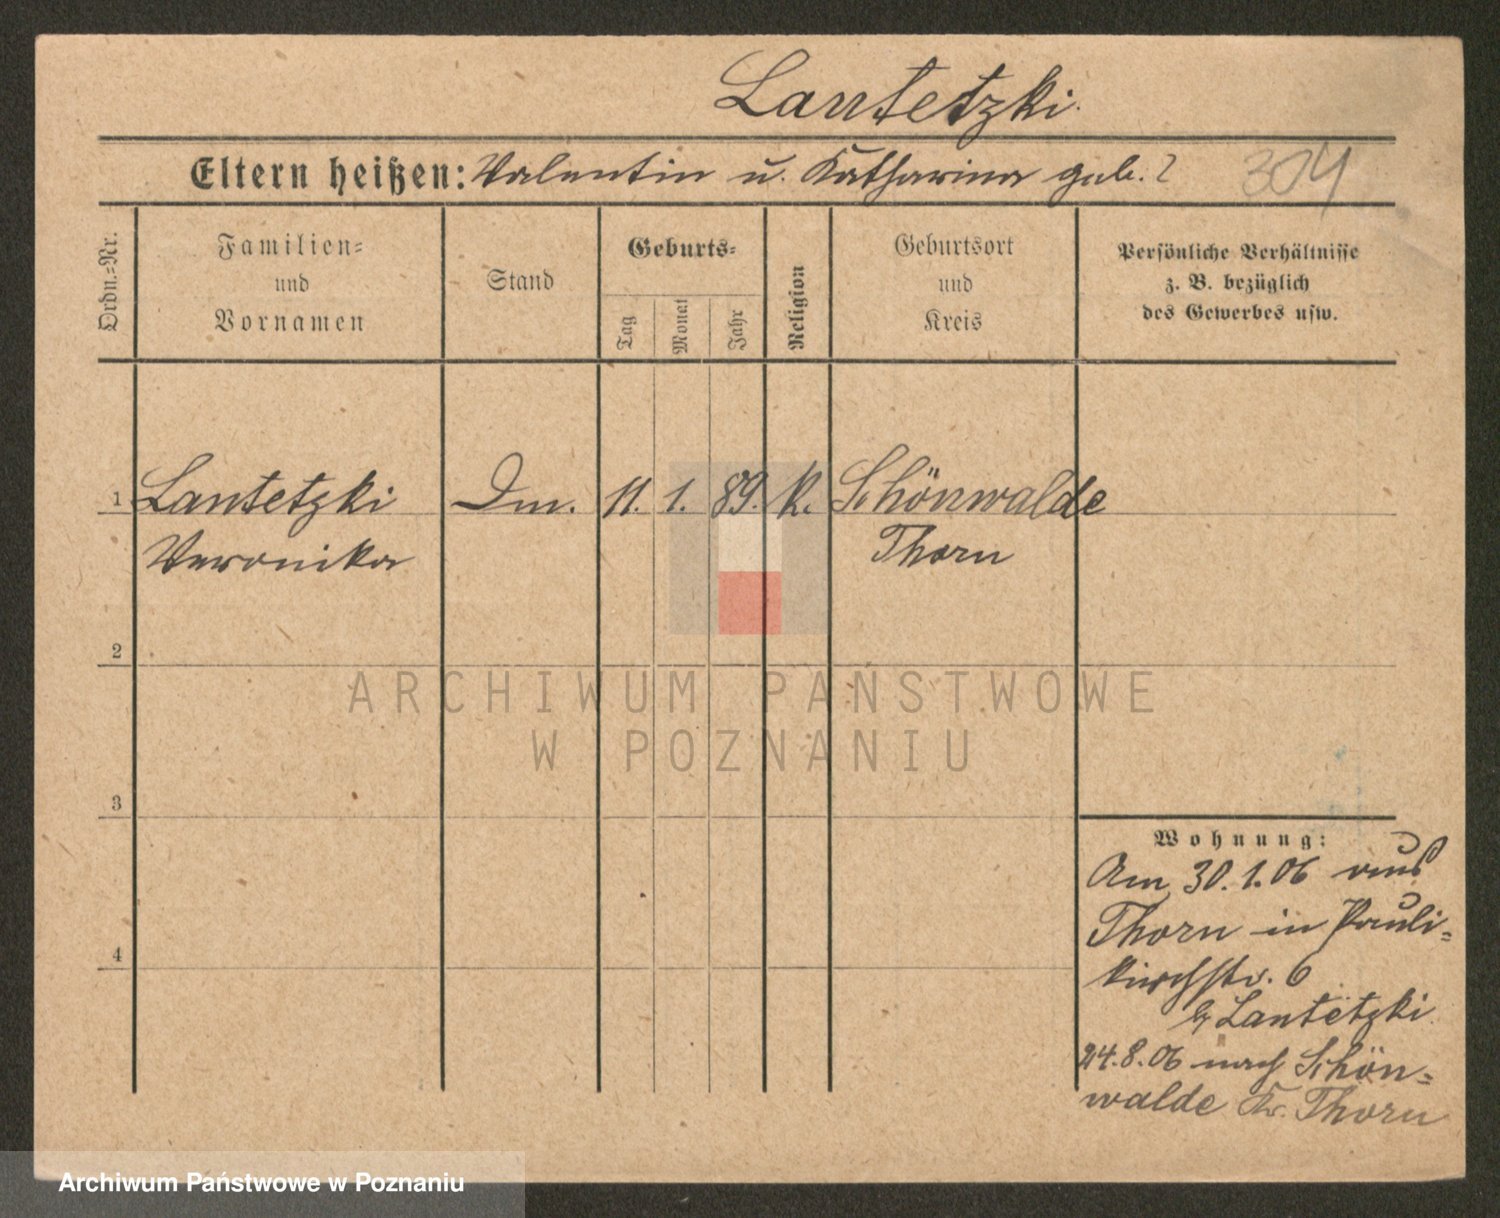 Lantetzki
Eltern heißen: Valentin u. Katharina geb. ? 304
Ordn.=Nr.
Familien=
und
Vornamen
Stand
Geburts=
Tag
Monat
Jahr
Religion
Geburtsort
und
Kreis
Persönliche Verhältnisse
z. B. bezüglich
des Gewerbes usw.
1 Lantetzki 11. 1. 89. k. Schönwalde
Veronika Thorn
2
3
4
Wohnung:
Am 30.1.06 aus
Thorn in Pauli=
kirchstr. 6
b/ Lantetzki
24.8.06 nach Schön=
walde Kr. Thorn
ARCHIWUM PAŃSTWOWE
W POZNANIU
Archiwum Państwowe w Poznaniu